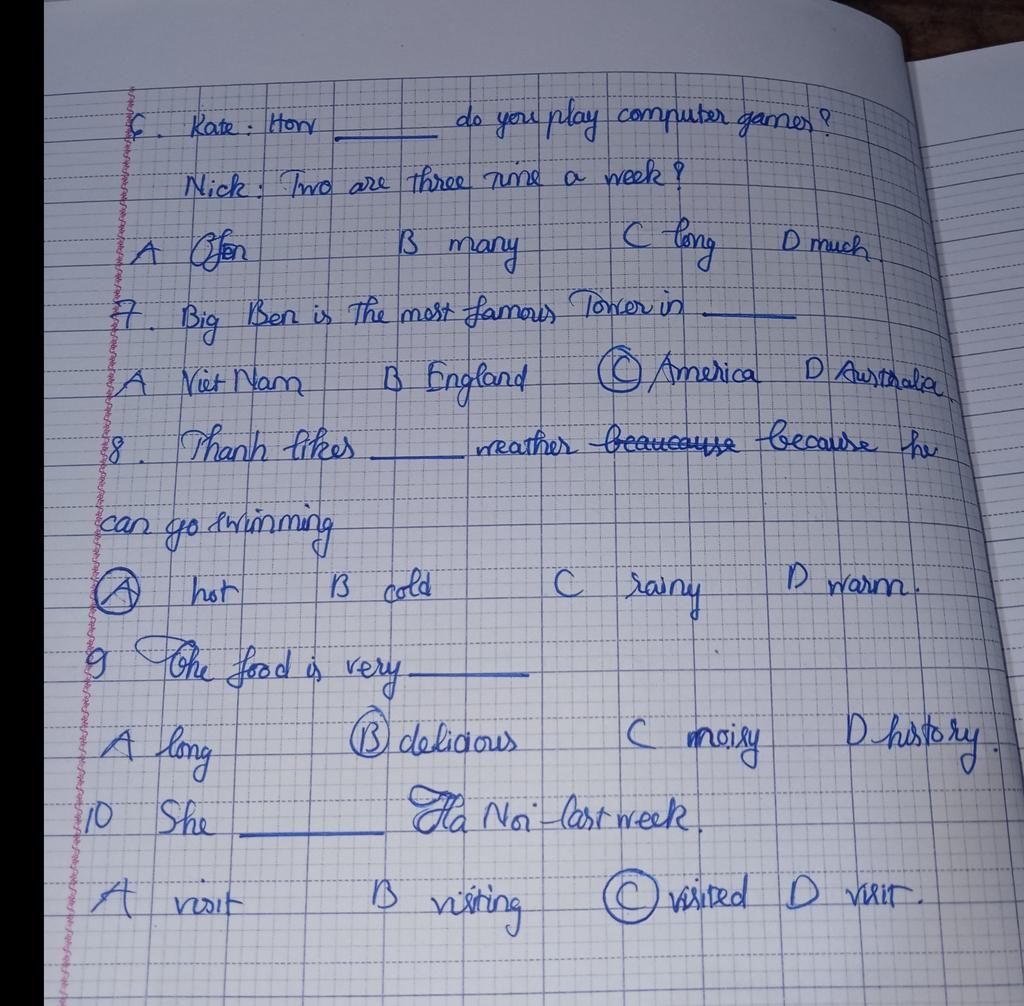 6. Kate: How ______ do you play computer games?
Nick: Two are three time a week?
A Ofen B many C long D much
7. Big Ben is the most famous Tower in ______
A Viet Nam B England C America D Australia
8. Thanh likes ______ weather beaucause because he
can go swimming
A hot B cold C rainy D warm.
9 The food is very ______
A long B delicious C noisy D history.
10 She ______ Ha Noi last week.
A visit B visiting C visited D visit.